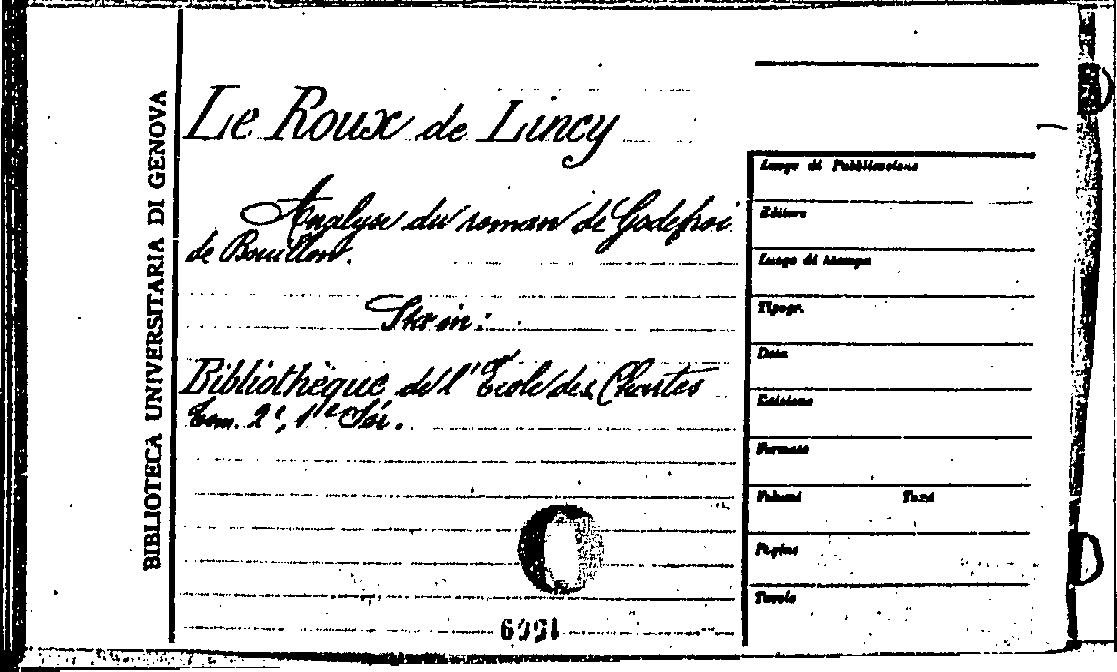 BIBLIOTECA UNIVERSITARIA DI GENOVA
Le Roux de Lincy
Analyse du roman de Godefroi
de Bouillon.
Sta in:
Bibliothèque de l'École des Chartes
Tom. 2e, 1re Sér.
Luogo di Pubblicazione
Editore
Luogo di stampa
Tipogr.
Data
Edizione
Formato
Volumi Tomi
Pagine
Tavole